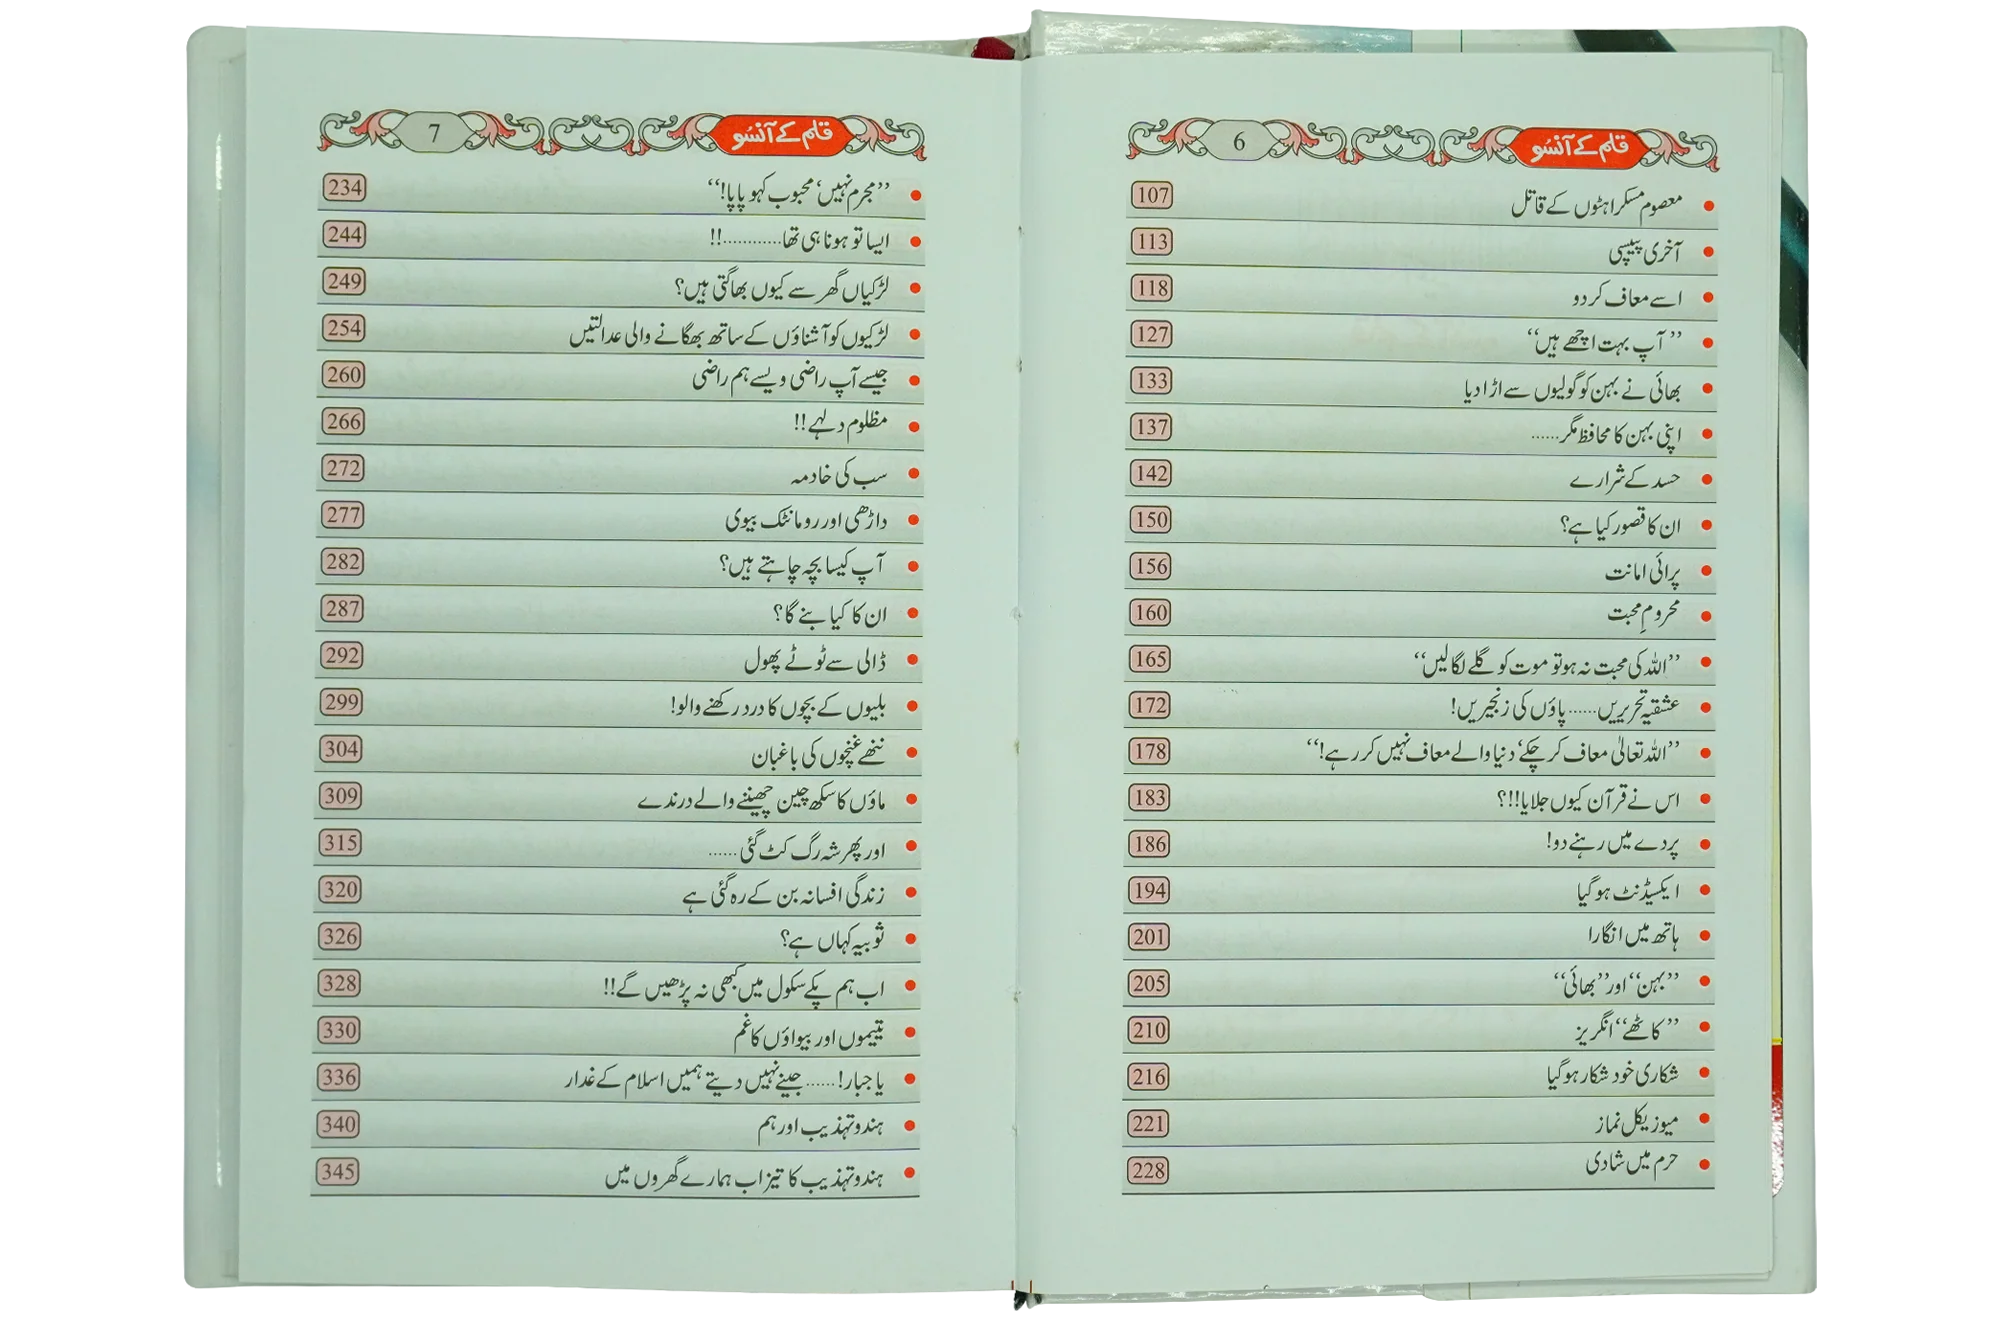 قلم کے آنسو 6
معصوم مسکراہٹوں کے قاتل 107
آخری پیپسی 113
اسے معاف کر دو 118
”آپ بہت اچھے ہیں“ 127
بھائی نے بہن کو گولیوں سے اڑا دیا 133
اپنی بہن کا محافظ مگر...... 137
حسد کے شرارے 142
ان کا قصور کیا ہے؟ 150
پرائی امانت 156
محرومِ محبت 160
”اللہ کی محبت نہ ہو تو موت کو گلے لگا لیں“ 165
عشقیہ تحریریں...... پاؤں کی زنجیریں! 172
”اللہ تعالیٰ معاف کر چکے‘ دنیا والے معاف نہیں کر رہے!“ 178
اس نے قرآن کیوں جلایا!!؟ 183
پردے میں رہنے دو! 186
ایکسیڈنٹ ہو گیا 194
ہاتھ میں انگارا 201
”بہن“ اور ”بھائی“ 205
”کاٹھے“ انگریز 210
شکاری خود شکار ہو گیا 216
میوزیکل نماز 221
حرم میں شادی 228
قلم کے آنسو 7
”مجرم نہیں‘ محبوب کہو پاپا!“ 234
ایسا تو ہونا ہی تھا............!! 244
لڑکیاں گھر سے کیوں بھاگتی ہیں؟ 249
لڑکیوں کو آشناؤں کے ساتھ بھگانے والی عدالتیں 254
جیسے آپ راضی ویسے ہم راضی 260
مظلوم دلہے!! 266
سب کی خادمہ 272
داڑھی اور رومانٹک بیوی 277
آپ کیسا بچہ چاہتے ہیں؟ 282
ان کا کیا بنے گا؟ 287
ڈالی سے ٹوٹے پھول 292
بلیوں کے بچوں کا درد رکھنے والو! 299
ننھے غنچوں کی باغبان 304
ماؤں کا سکھ چین چھیننے والے درندے 309
اور پھر شہ رگ کٹ گئی...... 315
زندگی افسانہ بن کے رہ گئی ہے 320
ثوبیہ کہاں ہے؟ 326
اب ہم پکے سکول میں کبھی نہ پڑھیں گے!! 328
یتیموں اور بیواؤں کا غم 330
یا جبار!...... جینے نہیں دیتے ہمیں اسلام کے غدار 336
ہندو تہذیب اور ہم 340
ہندو تہذیب کا تیزاب ہمارے گھروں میں 345